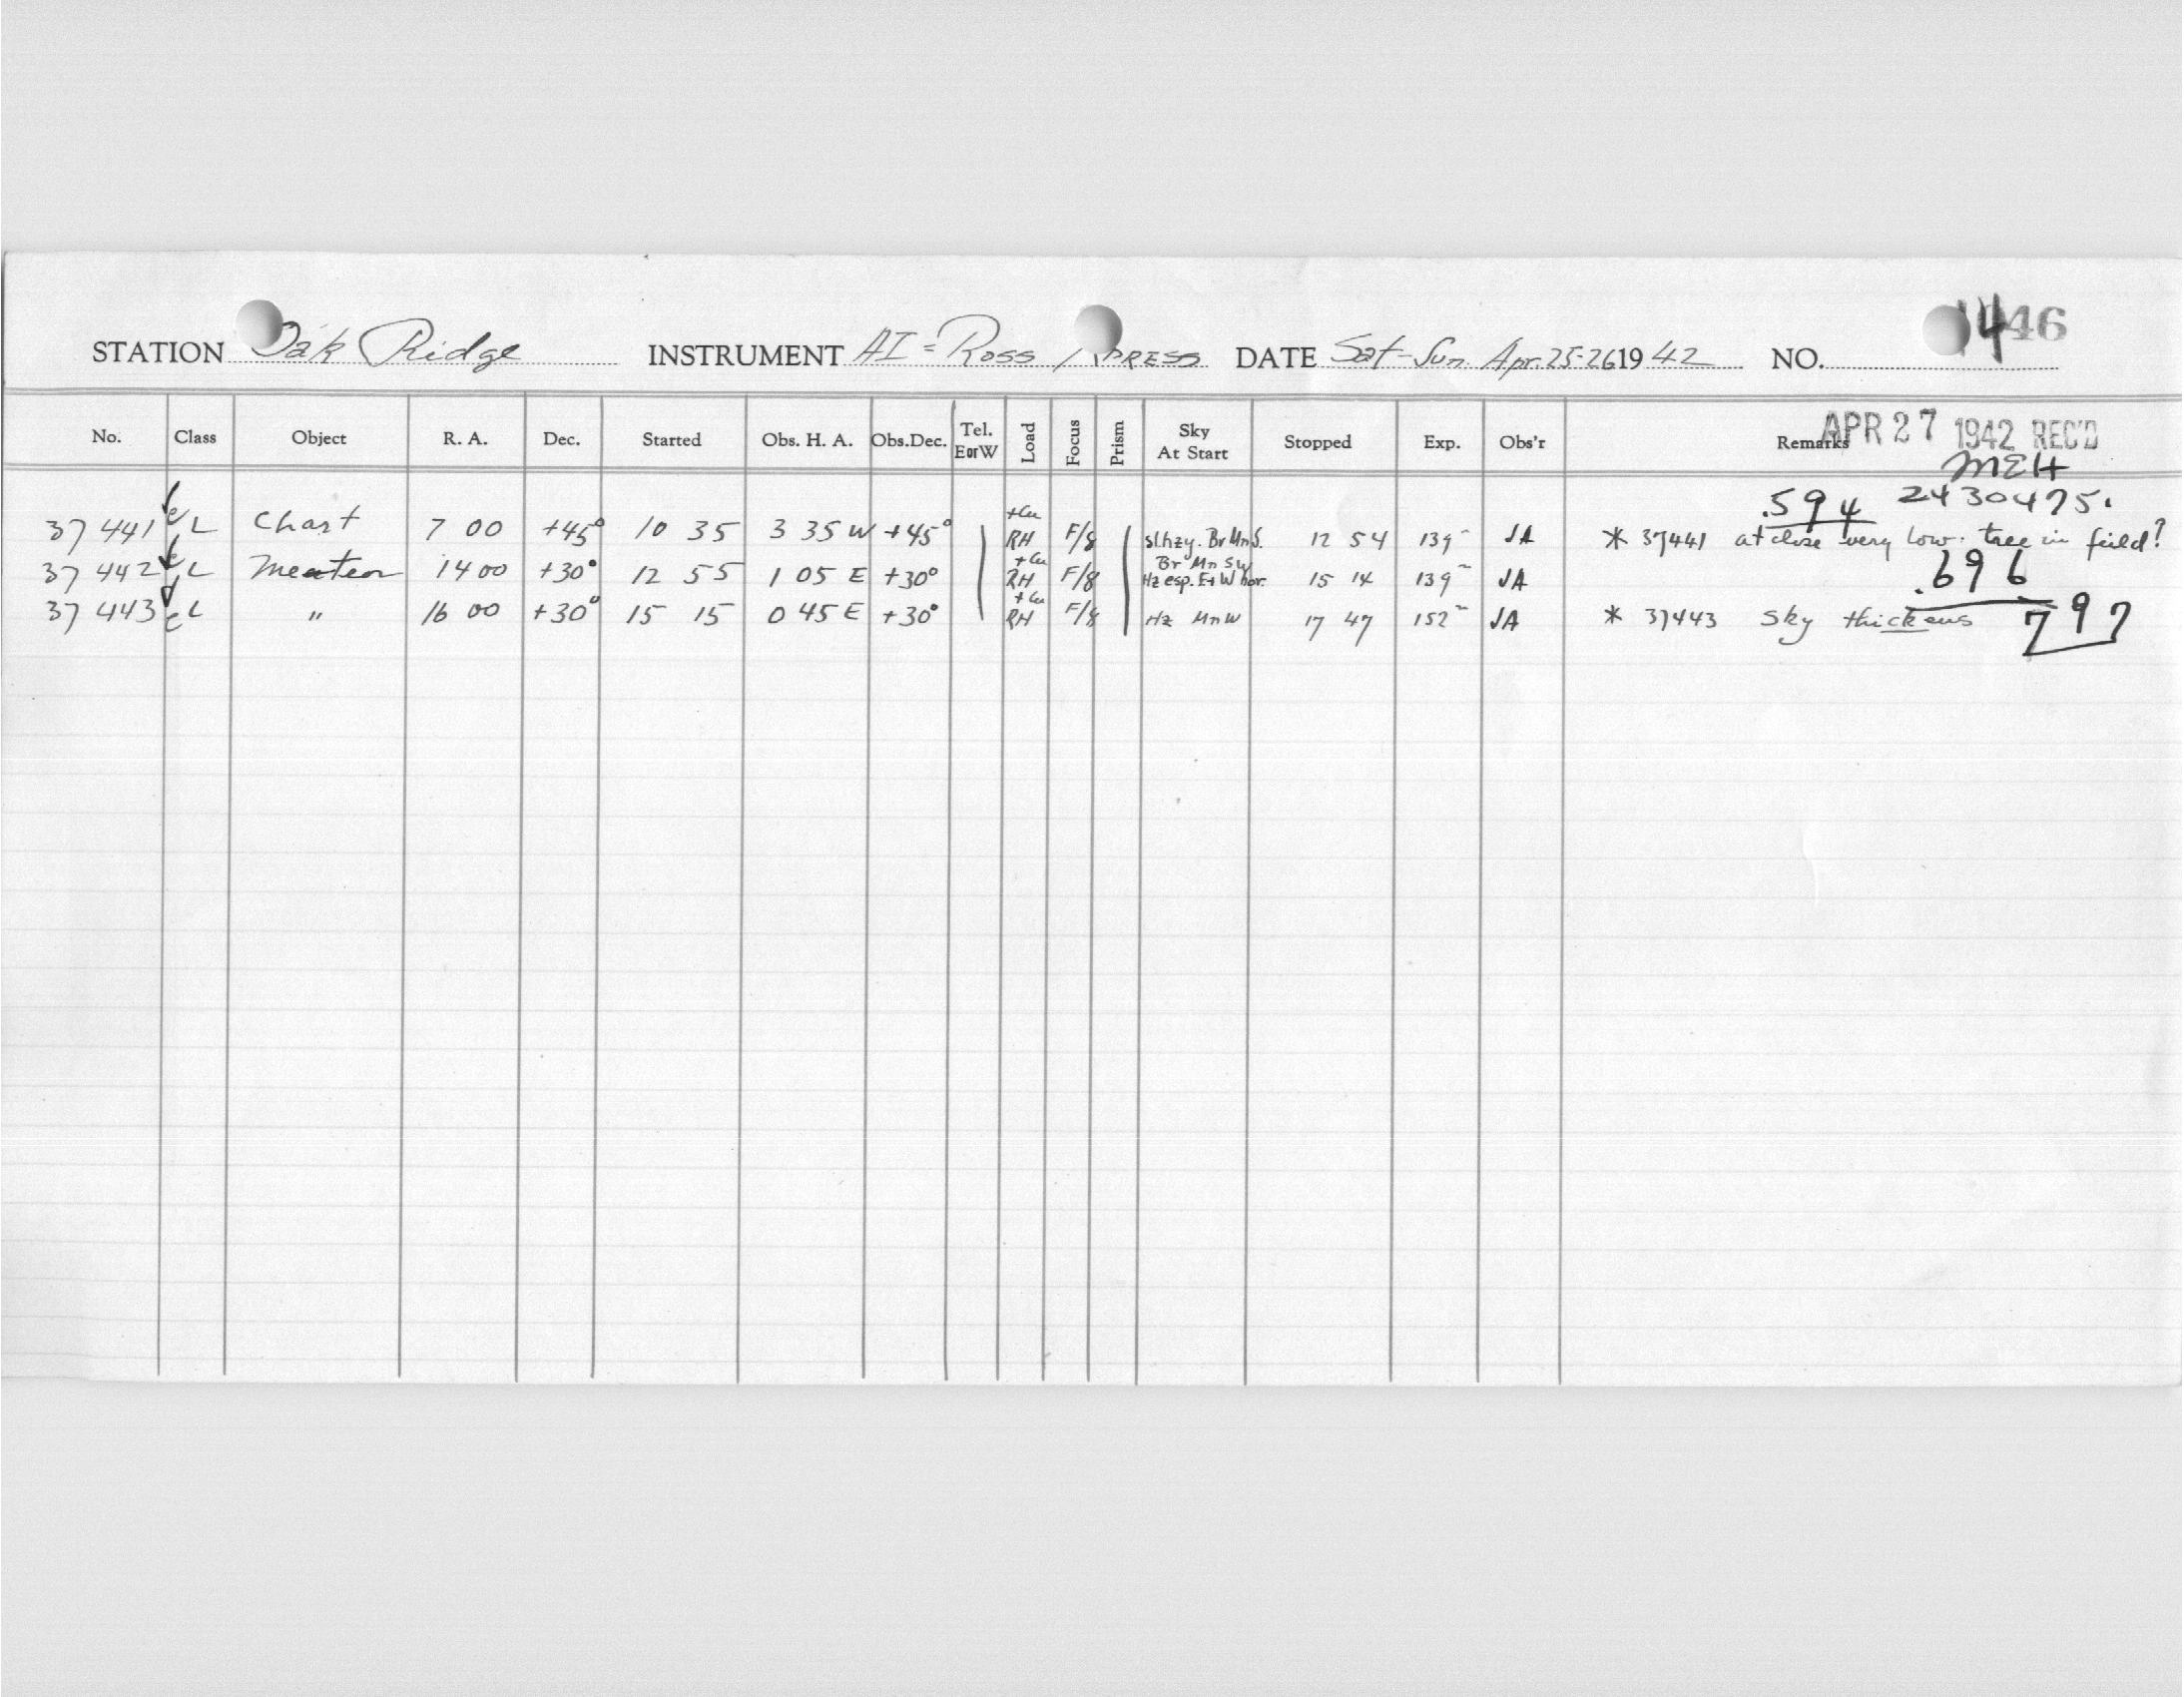 STATION Oak Ridge INSTRUMENT AI = Ross / XPRESS DATE Sat-Sun. Apr. 25-26 1942 NO. 46
No. Class Object R. A. Dec. Started Obs. H. A. Obs.Dec. Tel. E or W Load Focus Prism Sky At Start Stopped Exp. Obs'r Remarks
APR 27 1942 REC'D
MEH
.594 2430475.
37441 L Chart 7 00 +45° 10 35 3 35 W +45° +Cu RH F/8 sl.hzy. Br Mn S. 12 54 139 JA * 37441 at close very low. tree in field?
37442 L Meteor 14 00 +30° 12 55 1 05 E +30° +Cu RH F/8 Br Mn Sw Hz esp. E+W hor. 15 14 139 JA
.696
37443 L " 16 00 +30° 15 15 0 45 E +30° +Cu RH F/8 Hz Mn W 17 47 152 JA * 37443 Sky thickens
797